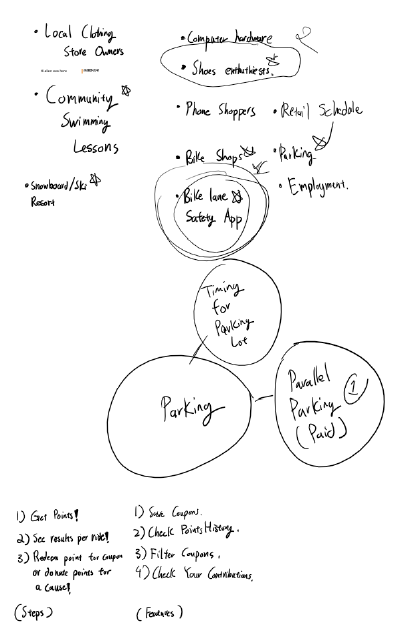 • Local Clothing
Store Owners
• Community
Swimming
Lessons
• Snowboard/Ski
Resort
• Computer hardware
• Shoes enthuthiests.
• Phone Shoppers
• Bike Shops
• Bike lane
Safety App
• Retail Schedule
• Parking
• Employment.
Timing
for
Parking
Lot
Parking
Parallel
Parking
(Paid)
1
1) Get Points!
2) See results per ride!
3) Redeem point for coupon
or donate points for
a cause!
(Steps)
1) Save Coupons.
2) Check Points History.
3) Filter Coupons.
4) Check Your Contributions.
(Features)